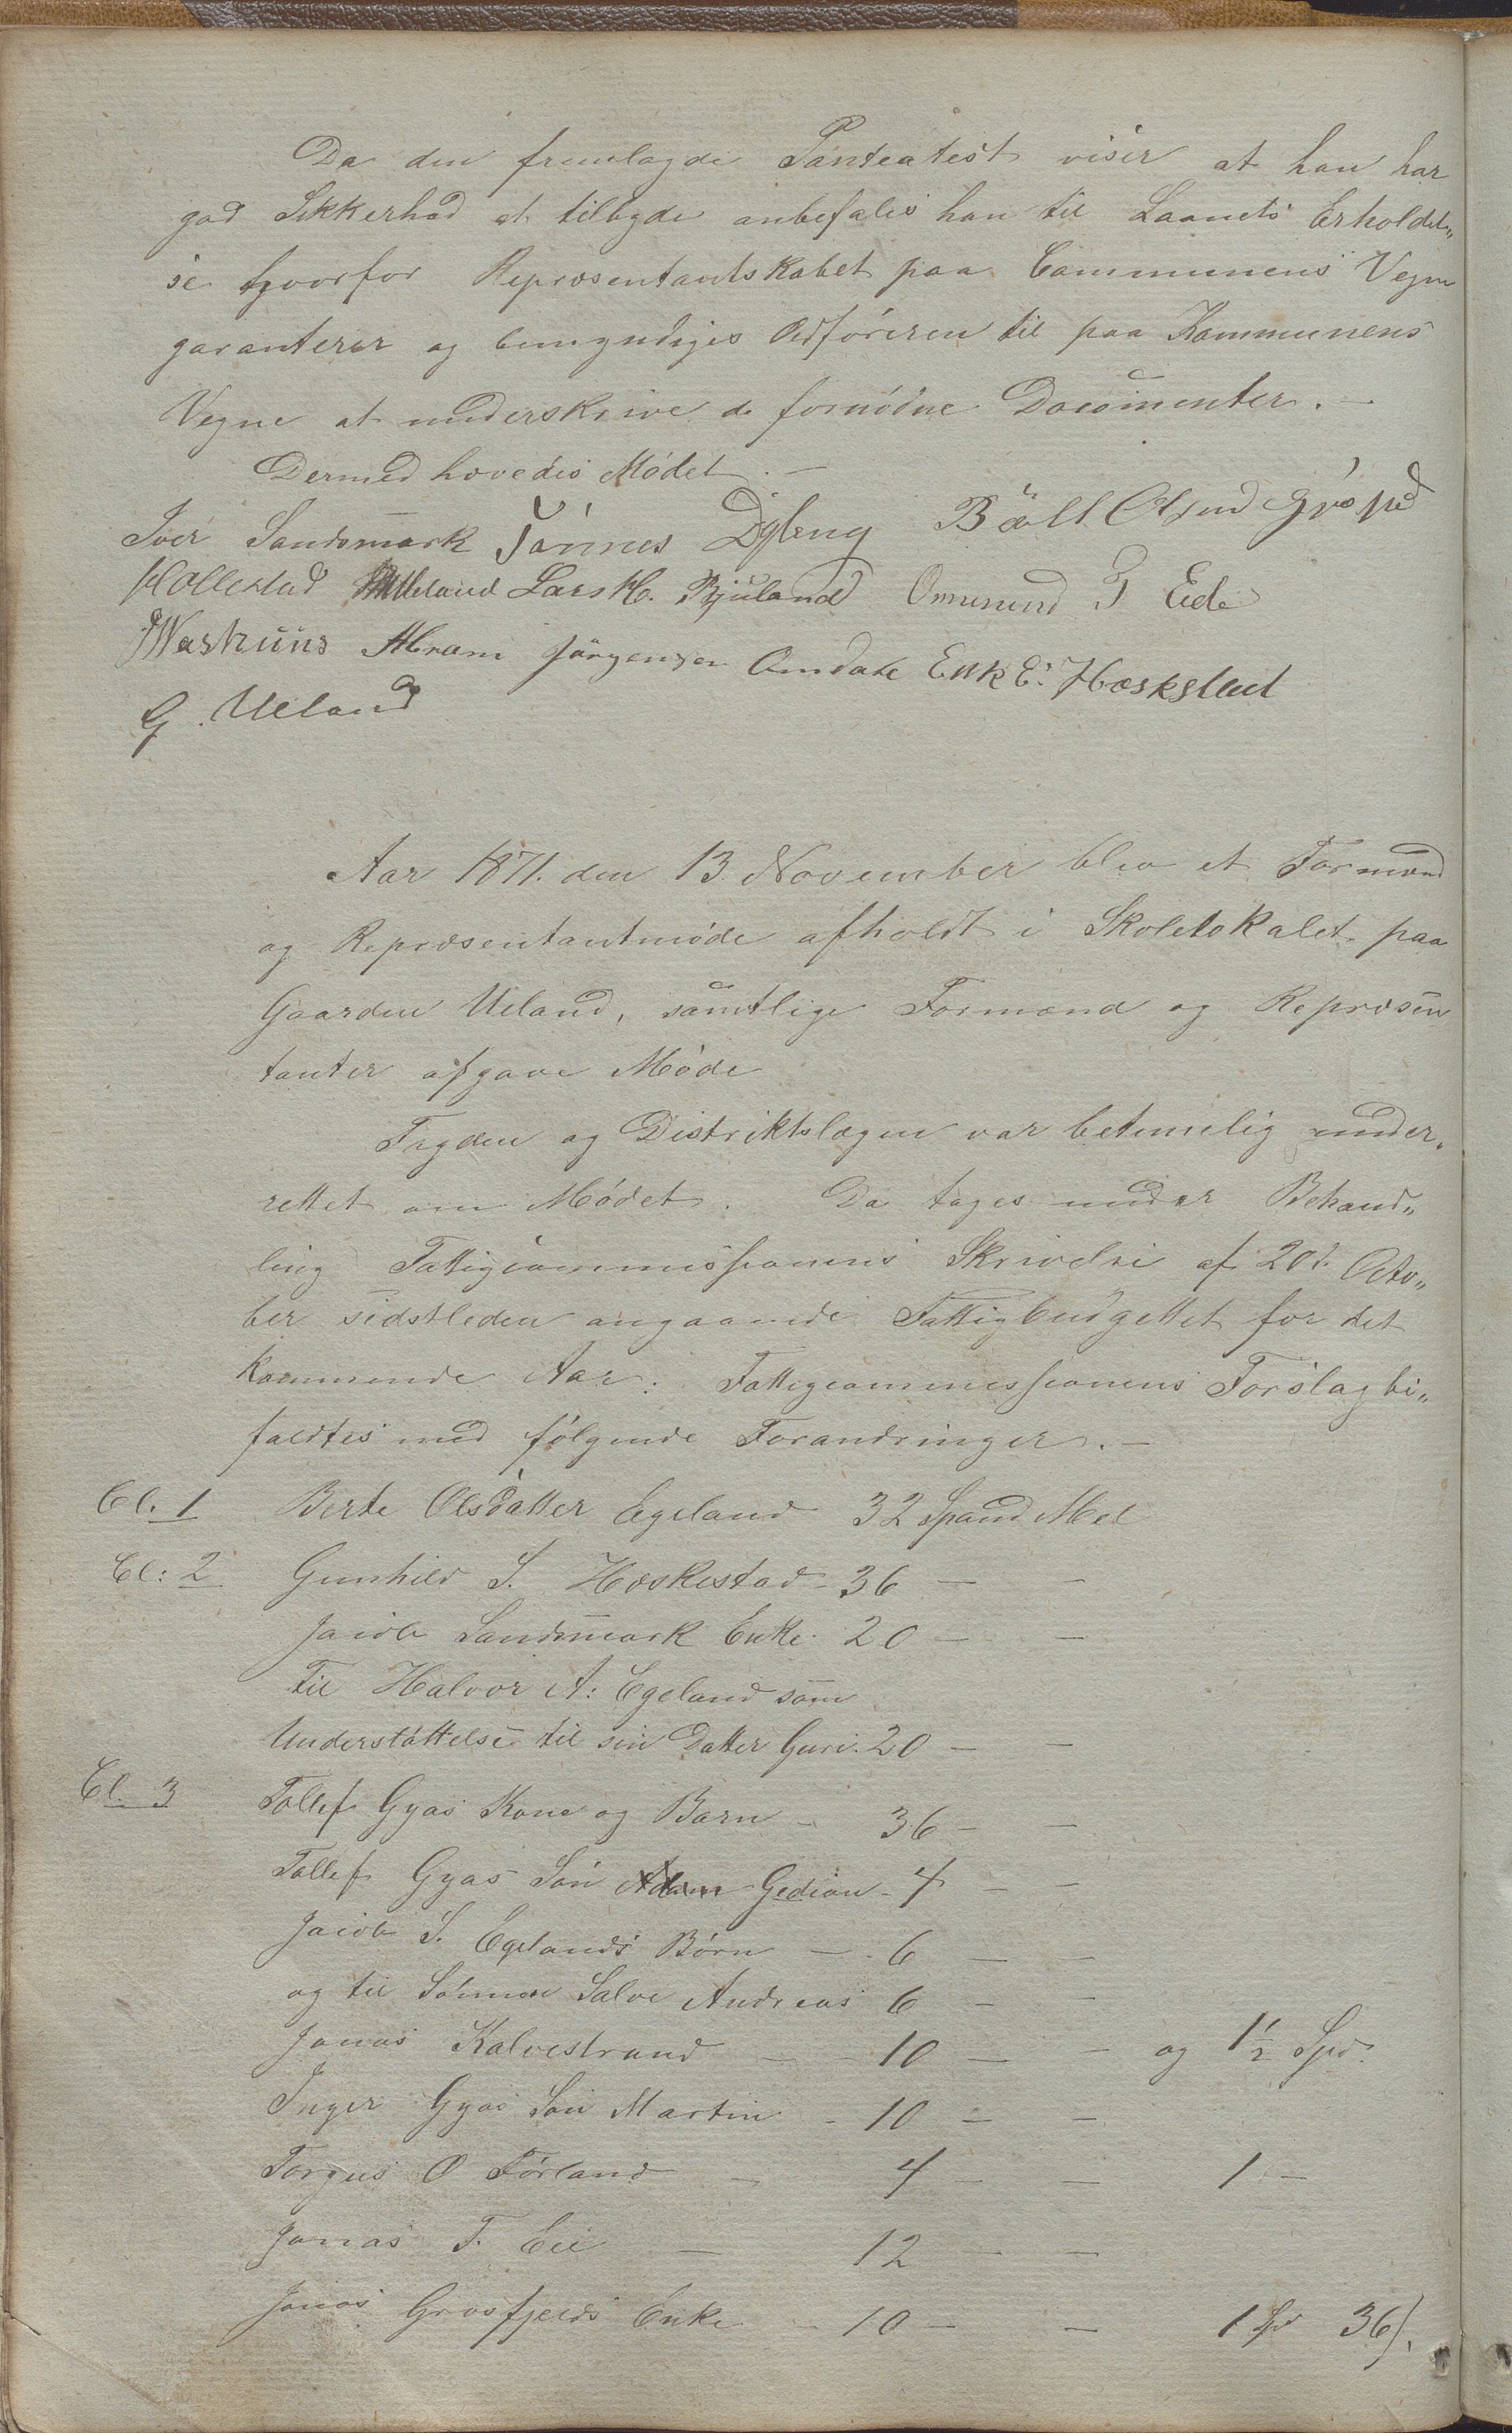 Da den fremlagde Panteatest viser at han har
god Sikkerhed at tilbyde anbefales han til Laanets Erholdel„
se hvorfor Repræsentantskabet paa Communens Vegne
garanterer og bemyndiges Ordføreren til paa Kommunens
Vegne at underskrive de fornødne Documenter. —
Dermed hævedes Mødet. —
Iver Sandsmark Tønnes Dybing Boell Olsend
Hollestad Lars H. Bjuland Ommund T Eide
Abram Jørgensen Omdale Erik E. Hæskestad
G. Ueland
Aar 1871. den 13 November blev et Formænd
og Repræsentantmøde afholdt i Skolelokalet paa
Gaarden Ueland, samtlige Formænd og Repræsen
tanter afgave Møde
Fogden og Distriktslægen var betimelig under„
rettet om Mødet. Da toges under Behand„
ling Fattigcommissionens Skrivelse af 20d. Octo„
ber sidstleden angaaende Fattigbudgettet for det
kommende Aar: Fattigcommissionens Forslag bi„
faldtes med følgende Forandringer. —
Cl. 1 Berte Olsdatter Egeland 32 Spand Mel
Cl: 2 Gunhild S. Hæskestad - 36 — —
Jacob Sandsmark Enke 20 — —
Til Halvor A: Egeland som
Understøttelse til sin Datter Guri. 20 — —
Cl. 3 Tollef Gyas Kone og Barn - 36 — —
Tollef Gyas Søn Adam Gedion - 4 — —
Jacob S. Egelands Børn — 6 — —
og til Sønnen Salve Andreas 6 — —
Jonas Kalvestrand — 10 — — og 1½ Spd.
Inger Gyas Søn Martin - 10 — —
Torgus O Førland — 4 — — 1 —
Jonas T. Eie — 12 — —
Jonas Grøsfjelds Enke — 10 — — 1 Spd 36 ſ.